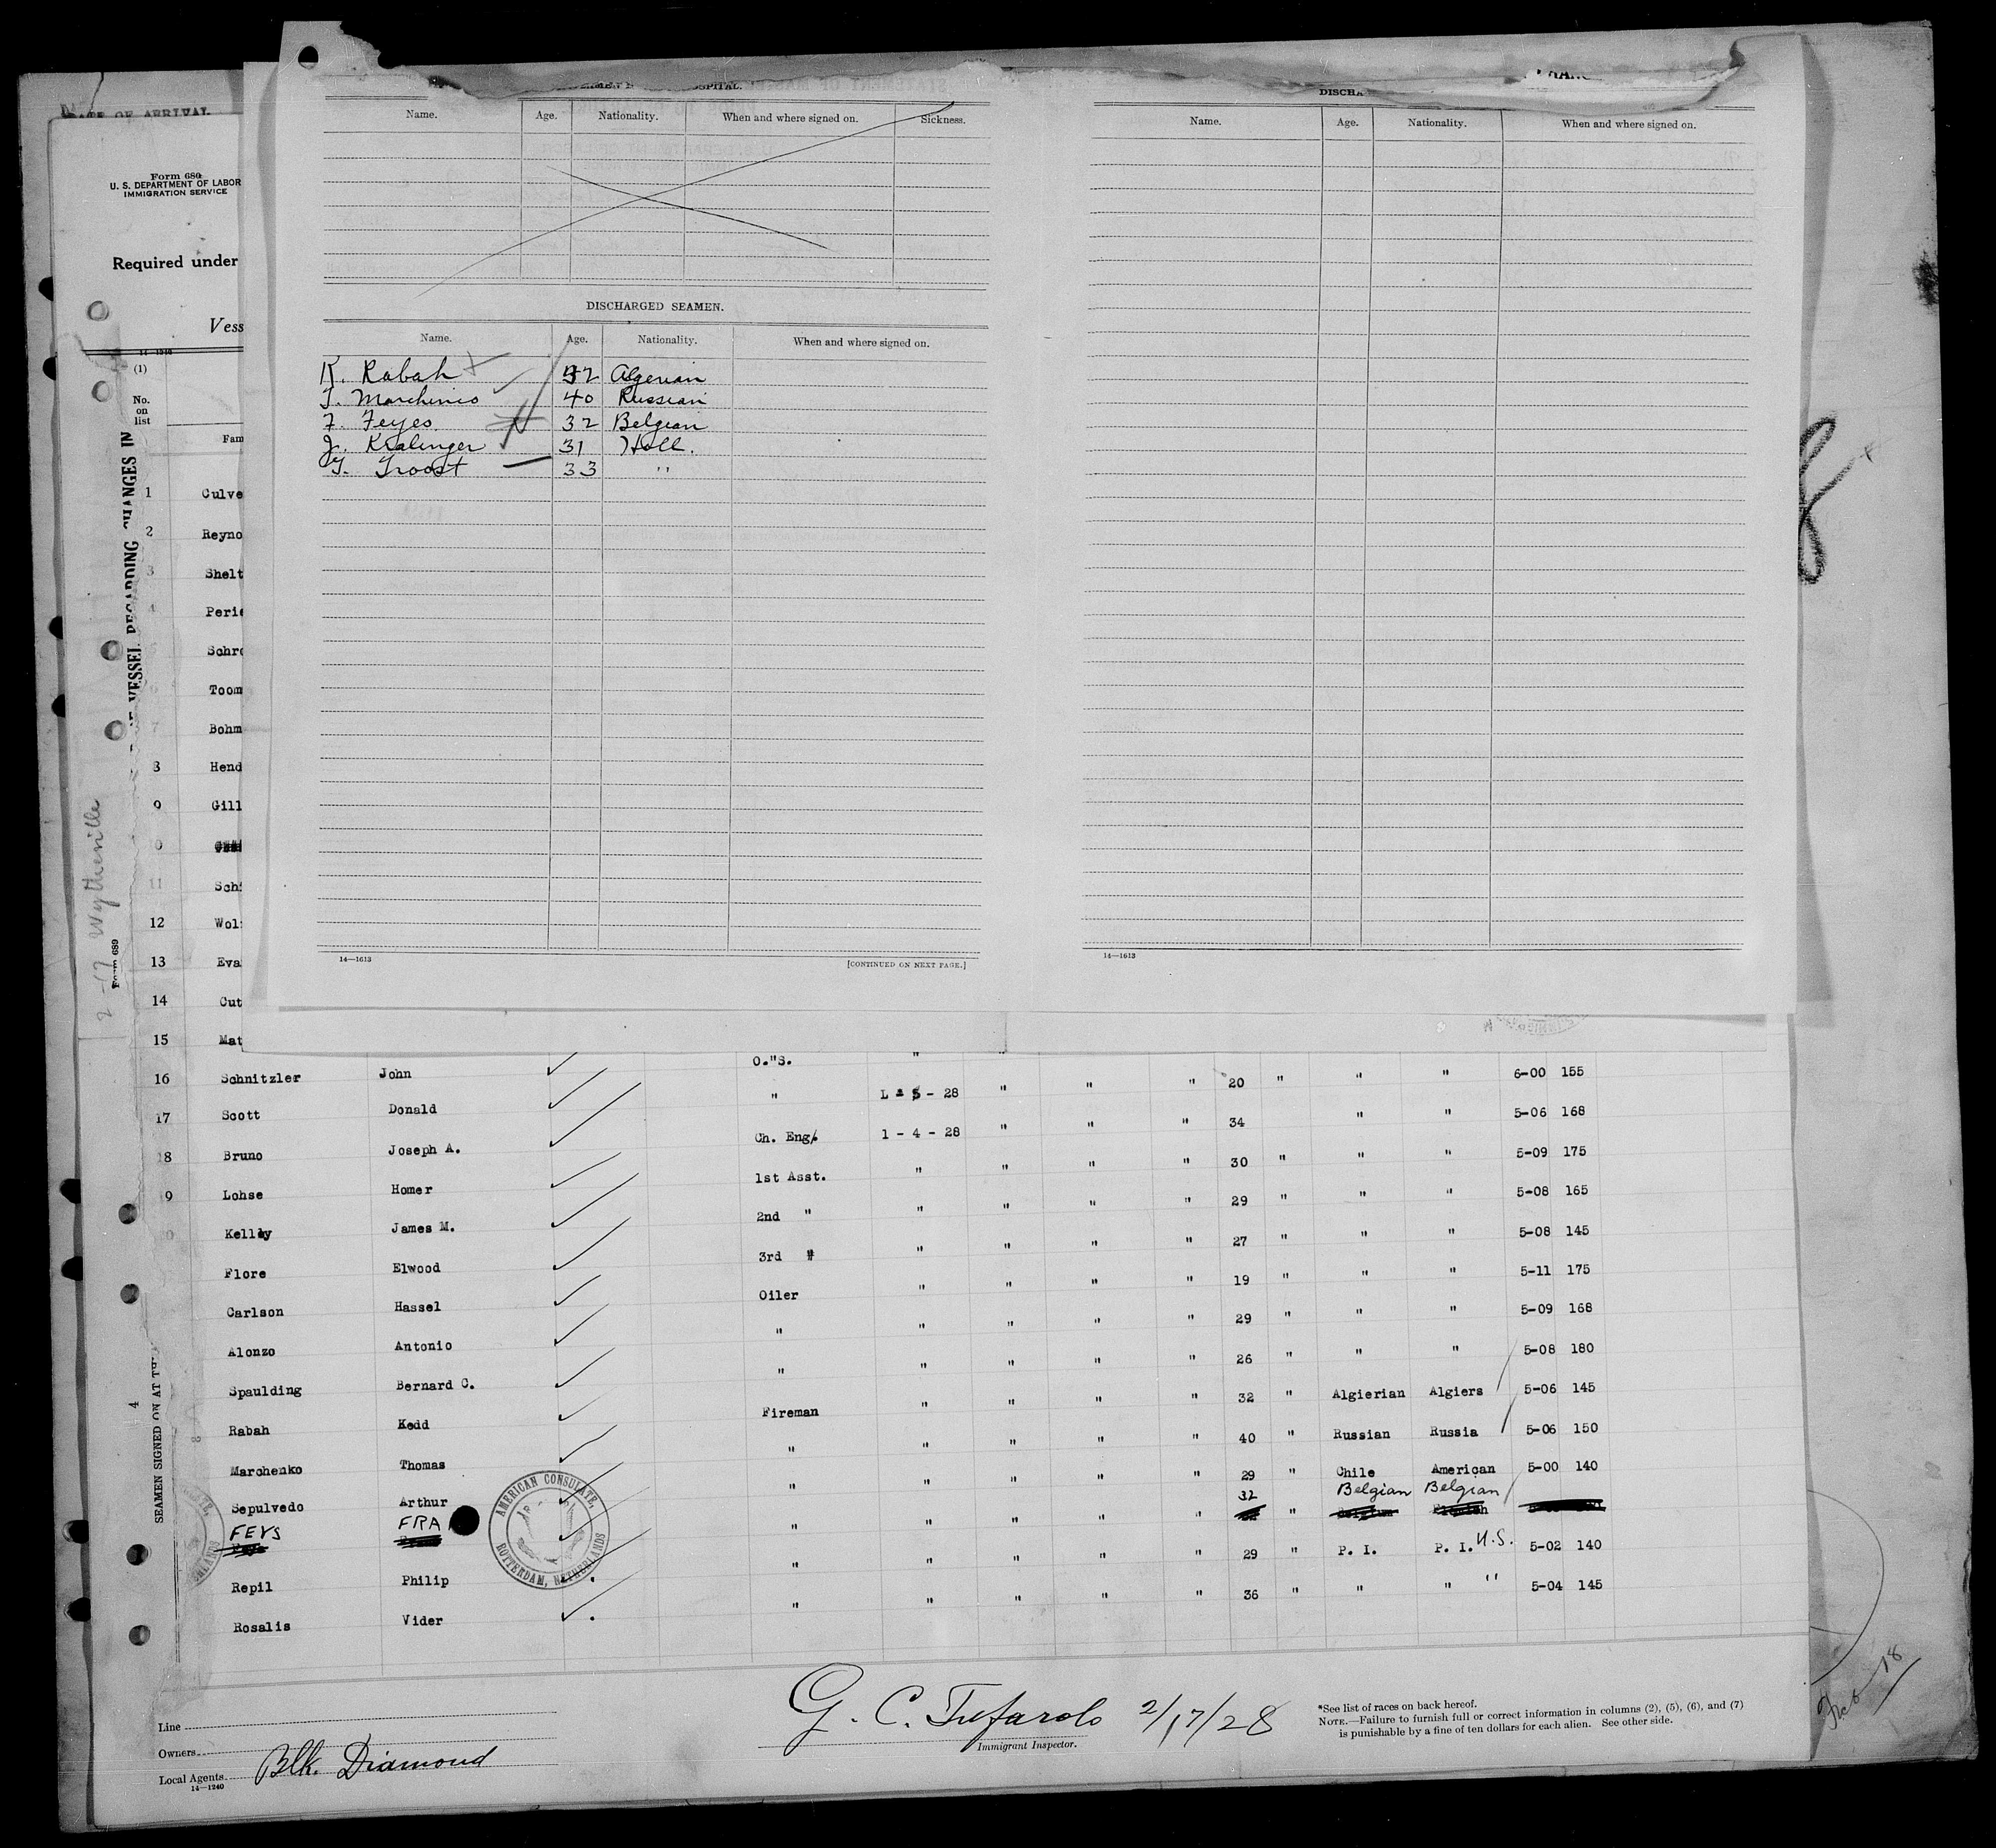 DATE OF ARRIVAL
Form 680
U. S. DEPARTMENT OF LABOR
IMMIGRATION SERVICE
Required under
Vess
14—1240
(1)
No. on list
Fam
VESSEL REGARDING CHANGES IN
2-17 Wytheville
Form 689
4
SEAMEN SIGNED ON AT TH
SPITAL.
Name. Age. Nationality. When and where signed on. Sickness.
DISCHARGED SEAMEN.
Name. Age. Nationality. When and where signed on.
K. Rabah 32 Algerian
T. Marchinco 40 Russian
F. Feyes. 32 Belgian
J. Kralinger 31 Holl.
G. Troost 33 "
14—1613 [CONTINUED ON NEXT PAGE.]
DISCHA
Name. Age. Nationality. When and where signed on.
14—1613
1 Culve
2 Reyno
3 Shelt
4 Perie
5 Schro
6 Toom
7 Bohm
8 Hend
9 Gill
0
11 Sch
12 Wol
13 Eva
14 Cut
15 Mat
O."S. "
16 Schnitzler John " L - 5 - 28 " " " 20 " " " 6-00 155
17 Scott Donald Ch. Eng. 1 - 4 - 28 " " " 34 " " 5-06 168
18 Bruno Joseph A. 1st Asst. " " " " 30 " " " 5-09 175
9 Lohse Homer 2nd " " " " " 29 " " " 5-08 165
0 Kelley James M. 3rd " " " " " 27 " " " 5-08 145
Flore Elwood Oiler " " " " 19 " " " 5-11 175
Carlson Hassel " " " " " 29 " " " 5-09 168
Alonzo Antonio " " " " " 26 " " " 5-08 180
Spaulding Bernard C. Fireman " " " " 32 " Algierian Algiers 5-06 145
Rabah Kedd " " " " " 40 " Russian Russia 5-06 150
Marchenko Thomas " " " " " 29 " Chile American 5-00 140
Sepulvedo Arthur 32 Belgian Belgian
FEYS FRA " " " " " "
" " " " " 29 " P. I. P. I. U.S. 5-02 140
Repil Philip " " " " " 36 " " " " 5-04 145
Rosalis Vider
AMERICAN CONSULATE,
ROTTERDAM, NETHERLANDS
Line
Owners
Local Agents Blk. Diamond
14—1240
G. C. Tufarolo 2/17/28
Immigrant Inspector.
*See list of races on back hereof.
NOTE.—Failure to furnish full or correct information in columns (2), (5), (6), and (7)
is punishable by a fine of ten dollars for each alien. See other side.
Feb 18